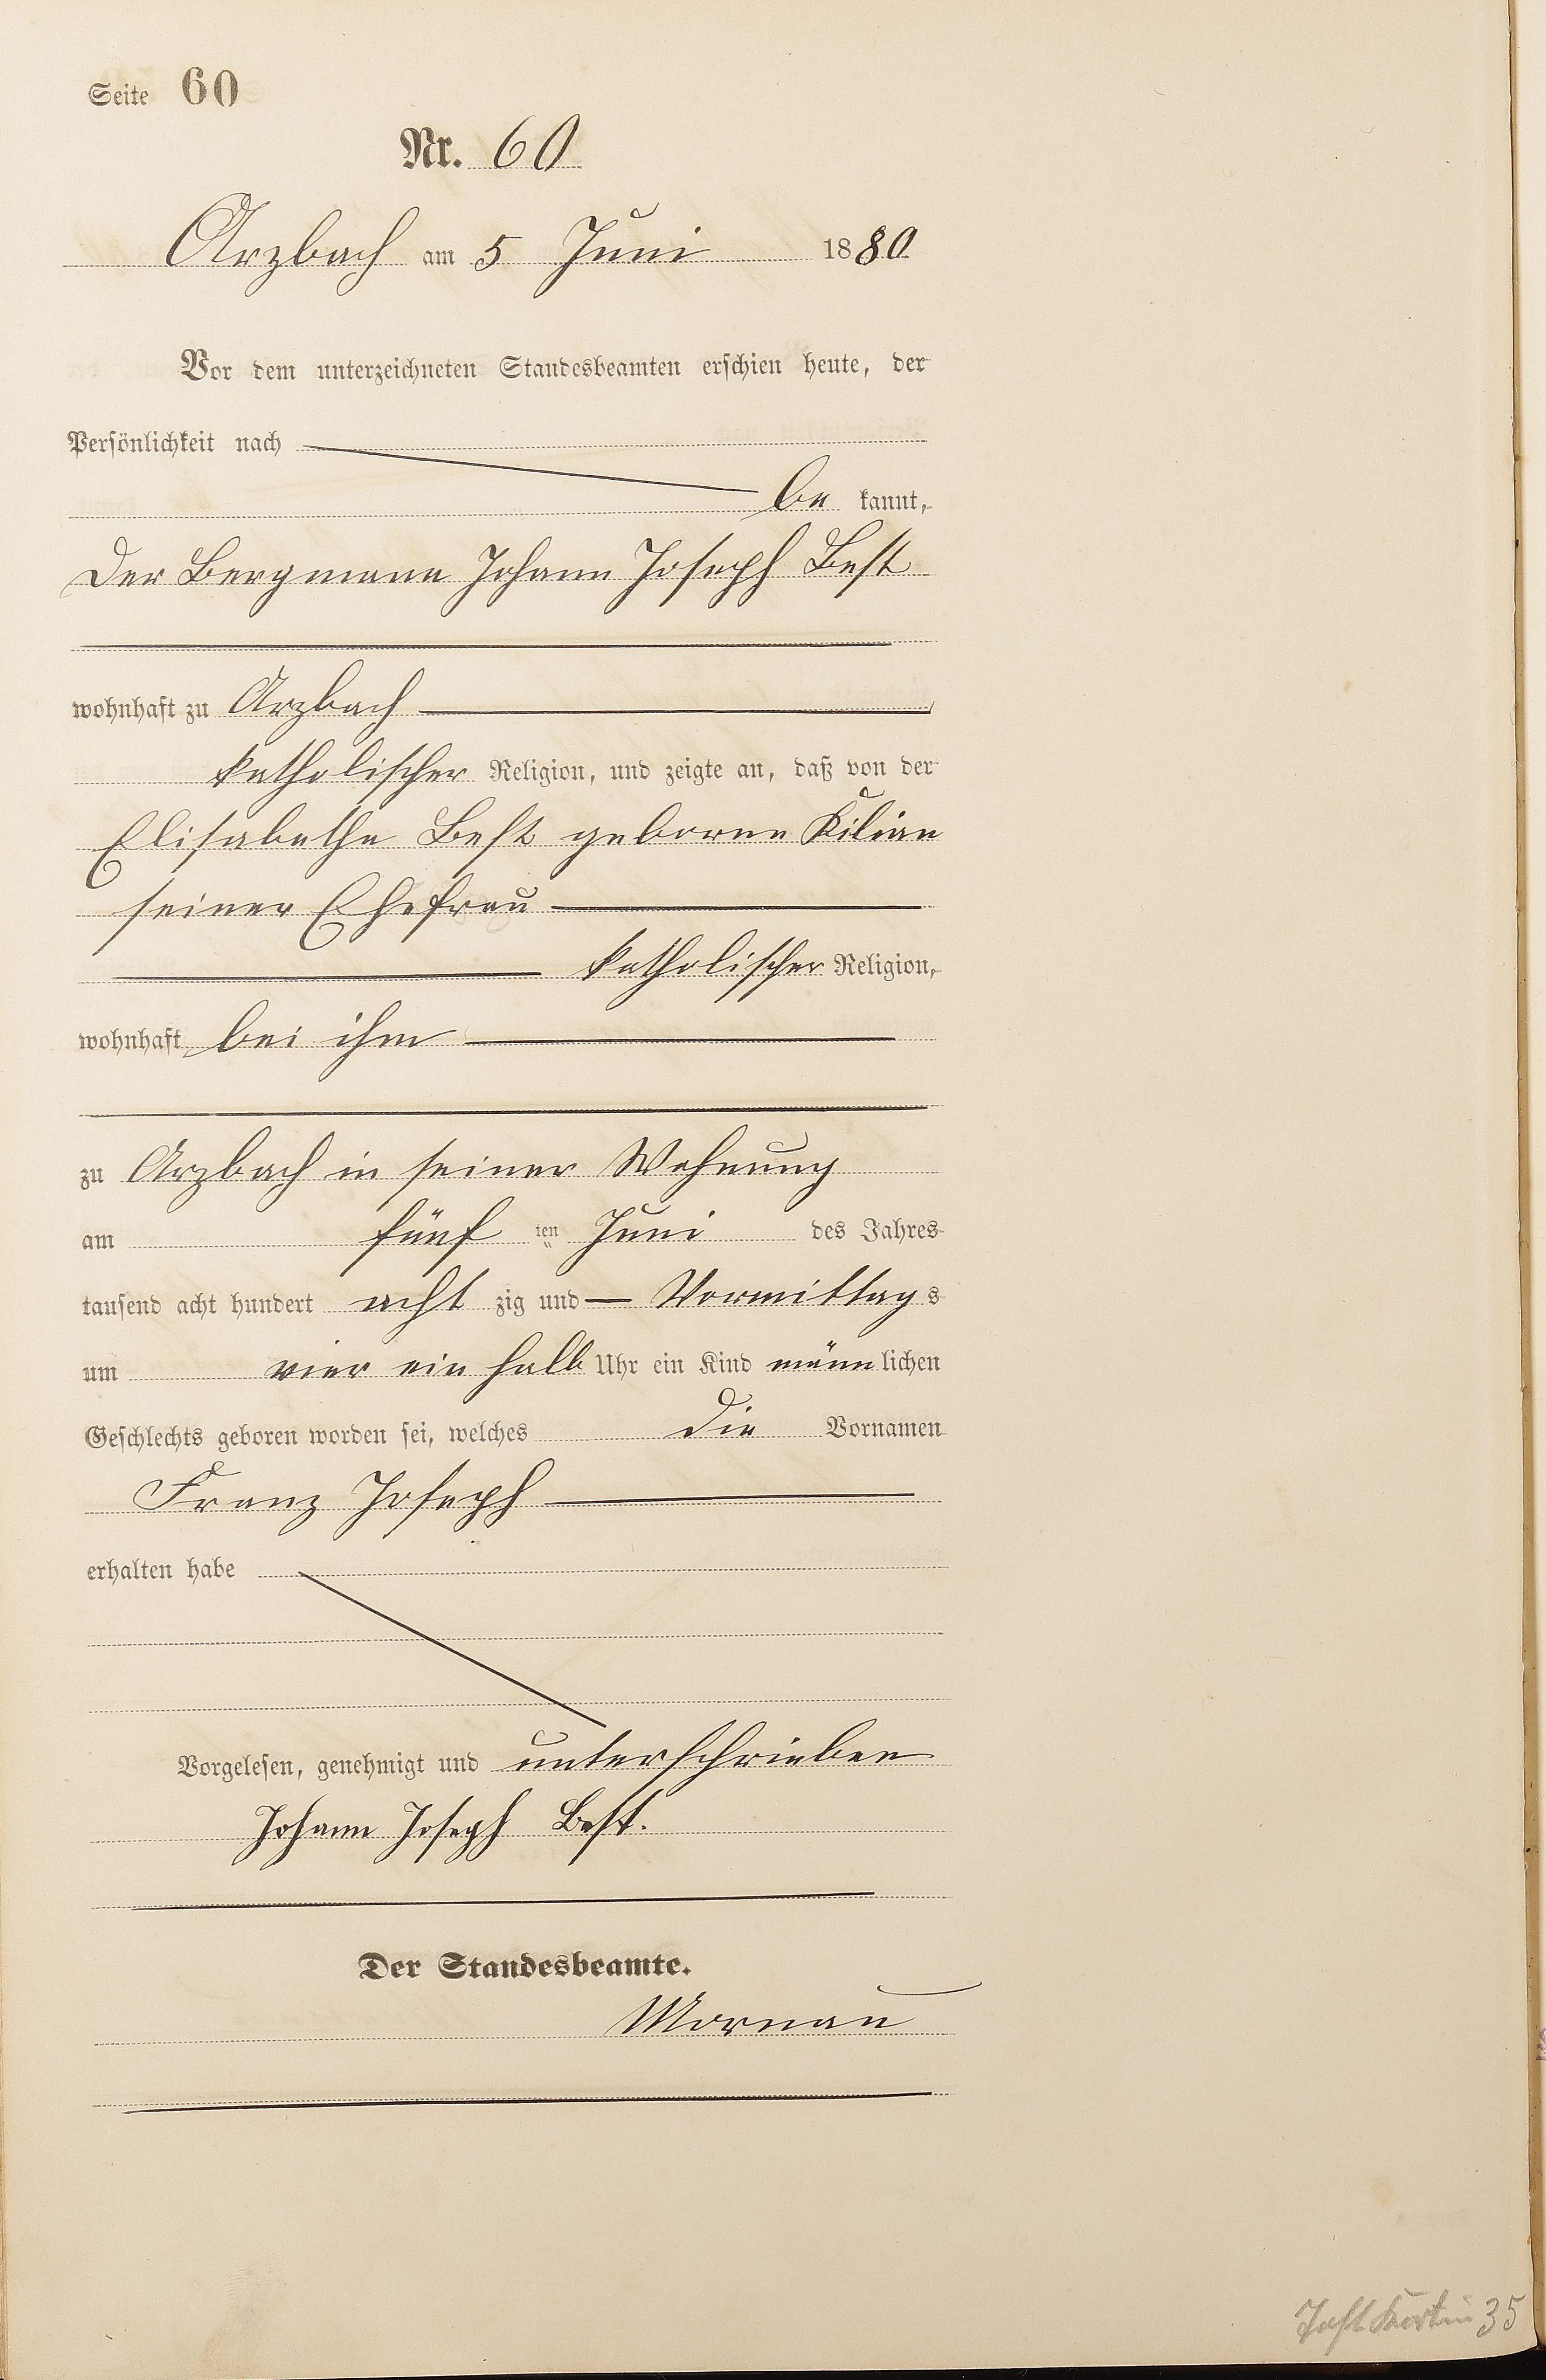 Seite 60
Nr. 60
Arzbach am 5 Juni 1880
Vor dem unterzeichneten Standesbeamten erschien heute, der
Persönlichkeit nach
be kannt,
der Bergmann Johann Joseph Best
wohnhaft zu Arzbach
katholischer Religion, und zeigte an, daß von der
Elisabetha Best geborne Kilian
seiner Ehefrau
katholischer Religion,
wohnhaft bei ihm
zu Arzbach in seiner Wohnung
am fünf ten Juni des Jahres
tausend acht hundert acht zig und — Vormittags
um vier ein halb Uhr ein Kind männlichen
Geschlechts geboren worden sei, welches die Vornamen
Franz Joseph
erhalten habe
Vorgelesen, genehmigt und unterschrieben
Johann Joseph Best.
Der Standesbeamte.
Mornau
35